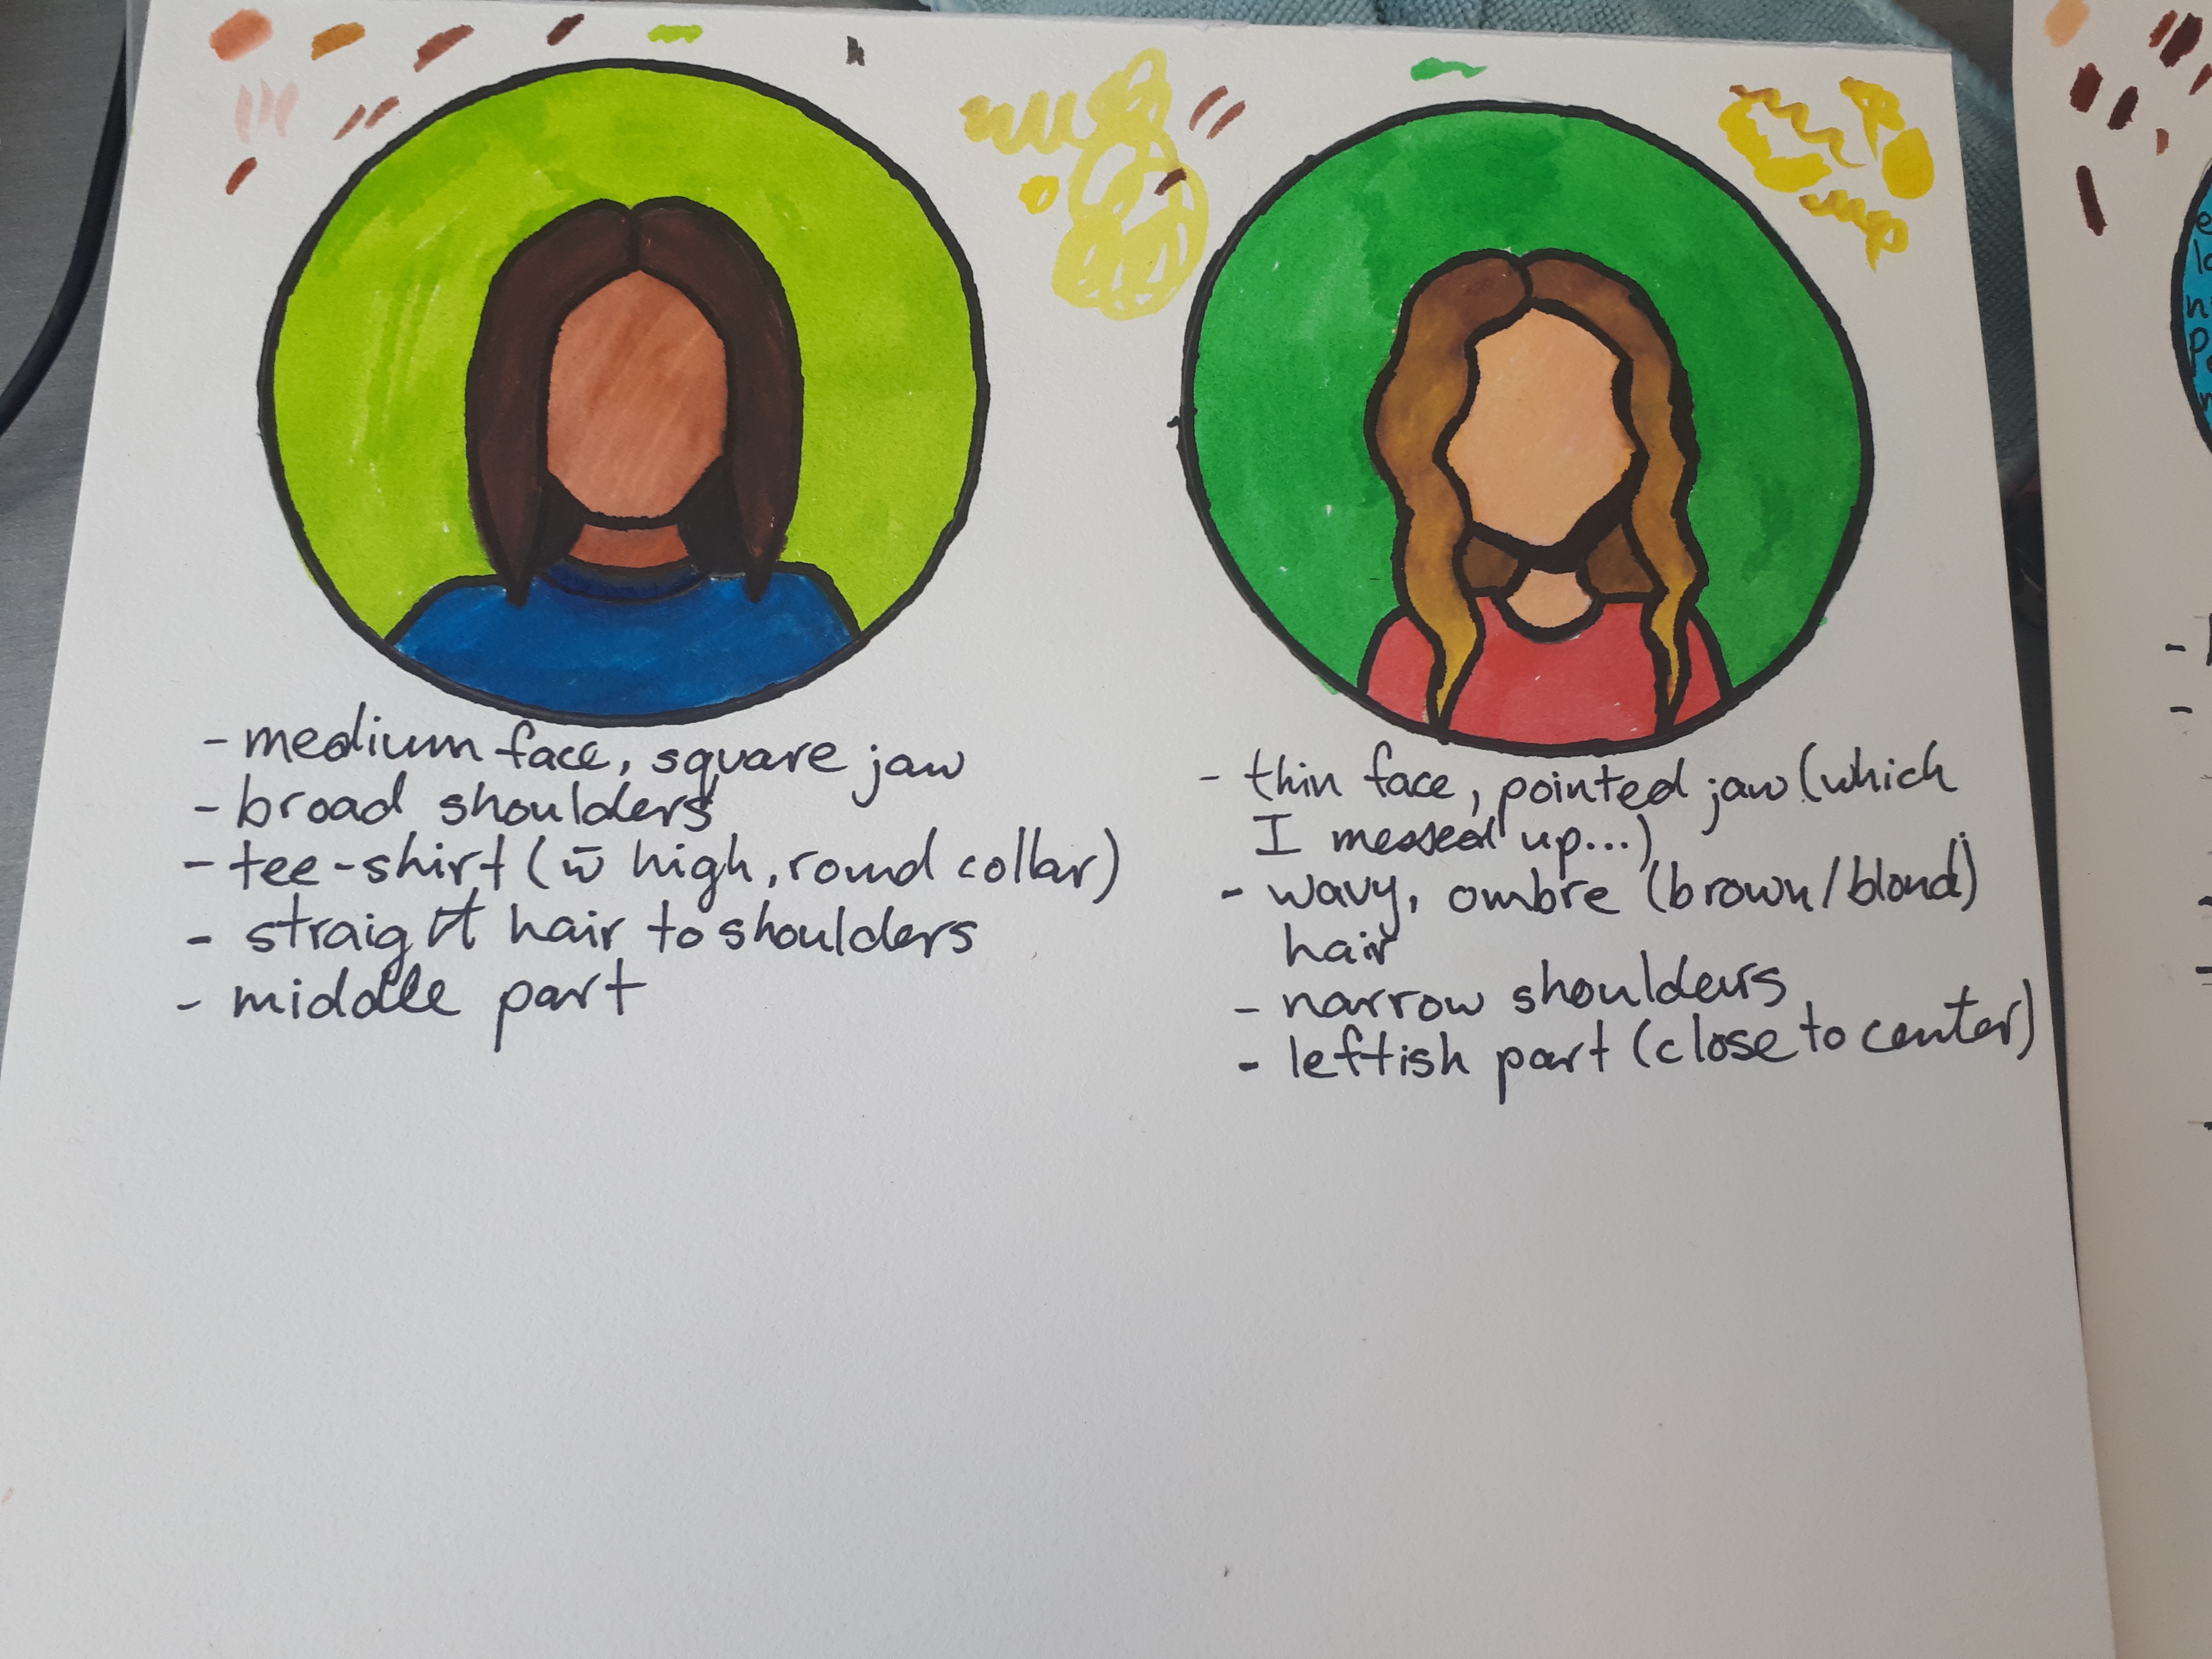 - medium face, square jaw
- broad shoulders
- tee-shirt (w̄ high, round collar)
- straight hair to shoulders
- middle part
- thin face, pointed jaw (which
I messed up...)
- wavy, ombre (brown/blond)
hair
- narrow shoulders
- leftish part (close to center)